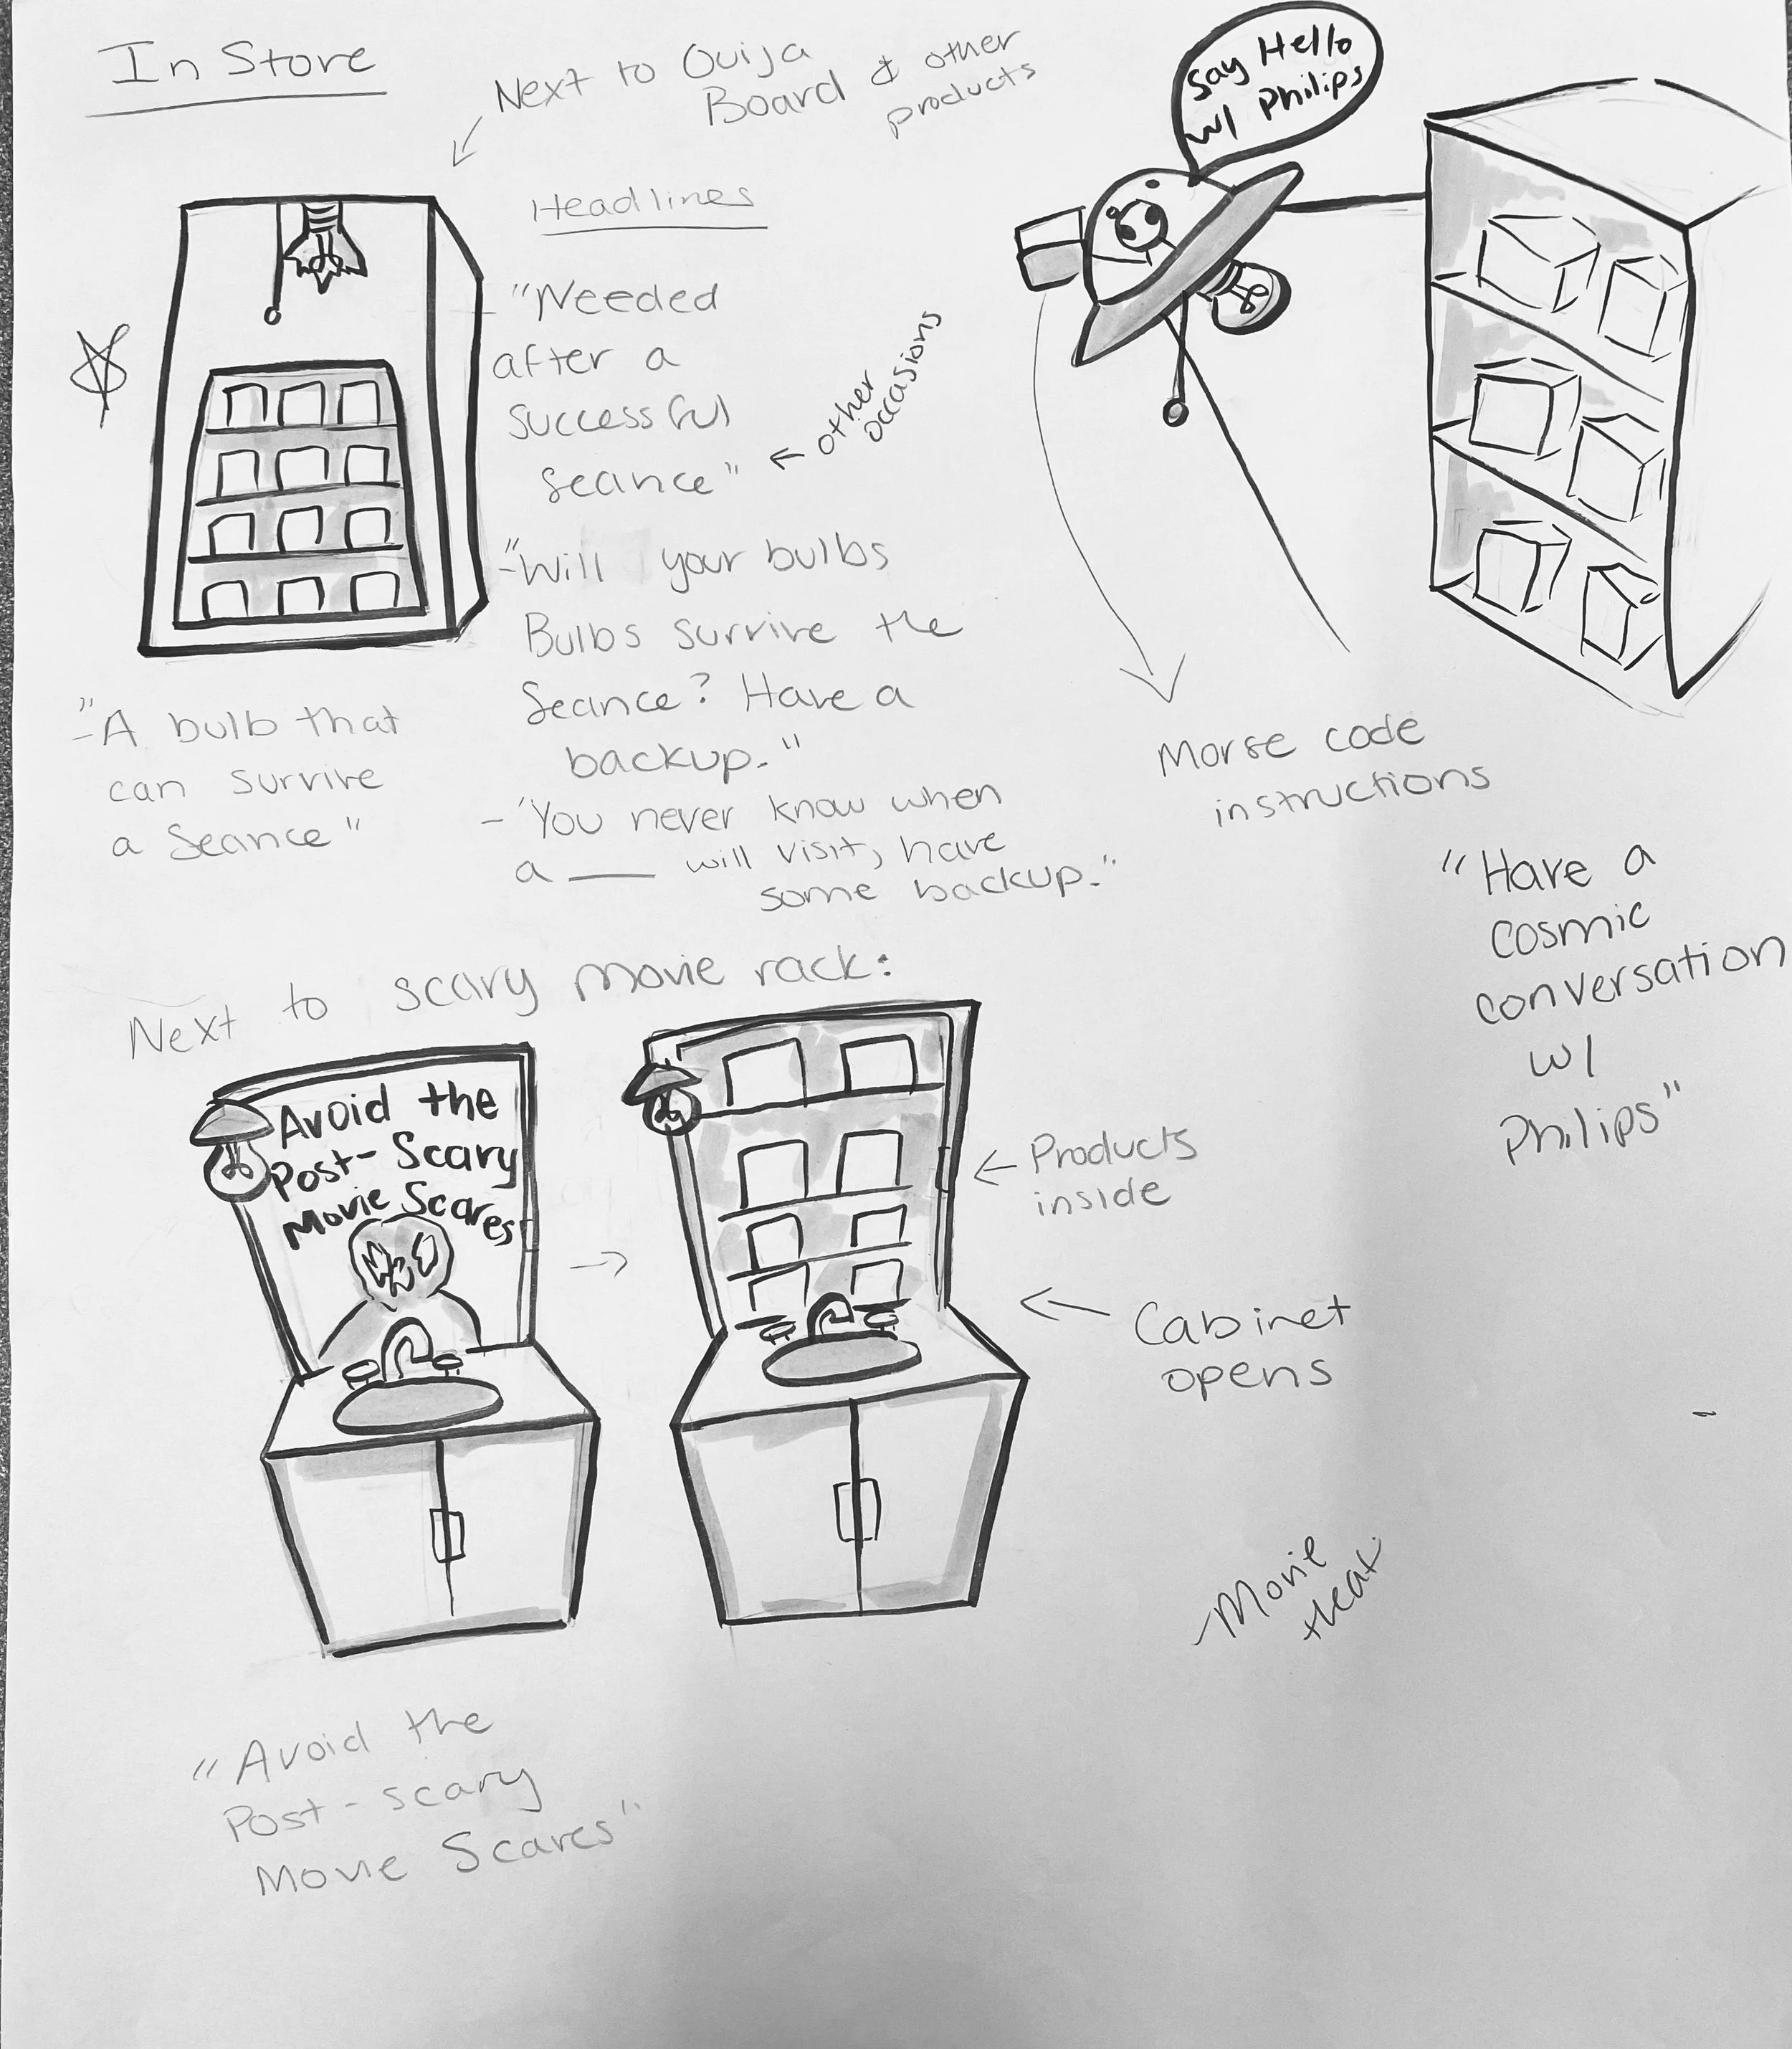 In Store
Next to Ouija
Board & other
products
Headlines
- "Needed
after a
successful
seance" ← other
occasions
- "Will your bulbs
Bulbs survive the
Seance? Have a
backup."
- "You never know when
a ___ will visit, have
some backup."
- "A bulb that
can survive
a Seance"
Say Hello
w/ Philips
Morse code
instructions
"Have a
cosmic
conversation
w/
Philips"
Next to scary movie rack:
Avoid the
Post-Scary
Movie Scares
← Products
inside
← Cabinet
opens
- Movie
theat.
"Avoid the
Post-scary
Movie Scares"